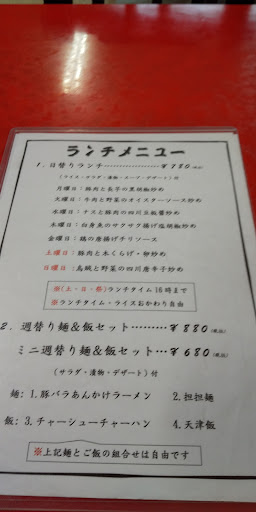 ランチメニュー
1．日替りランチ………………￥780(税込)
(ライス・サラダ・漬物・スープ・デザート）付
月曜日：豚肉と長芋の黒胡椒炒め
火曜日：牛肉と野菜のオイスターソース炒め
水曜日：ナスと豚肉の四川豆板醤炒め
木曜日：白身魚のサクサク揚げ塩胡椒炒め
金曜日：鶏の唐揚げチリソース
土曜日：豚肉と木くらげ・卵炒め
日曜日：烏賊と野菜の四川唐辛子炒め
※(土・日・祭)ランチタイム16時まで
※ランチタイム・ライスおかわり自由
2．週替り麺＆飯セット………￥880(税込)
ミニ週替り麺＆飯セット…￥680(税込)
(サラダ・漬物・デザート）付
麺：1.豚バラあんかけラーメン 2.担担麺
飯：3.チャーシューチャーハン 4.天津飯
※上記麺とご飯の組合せは自由です